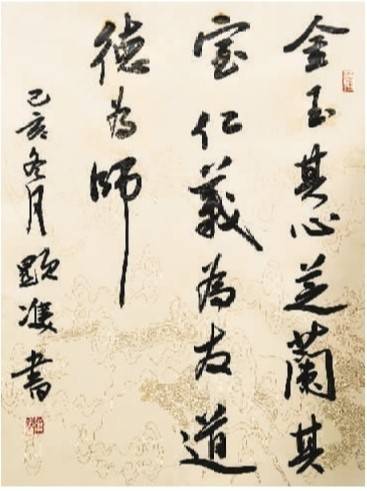 金玉其心芝蘭其
室仁義為友道
德為師
己亥冬月書